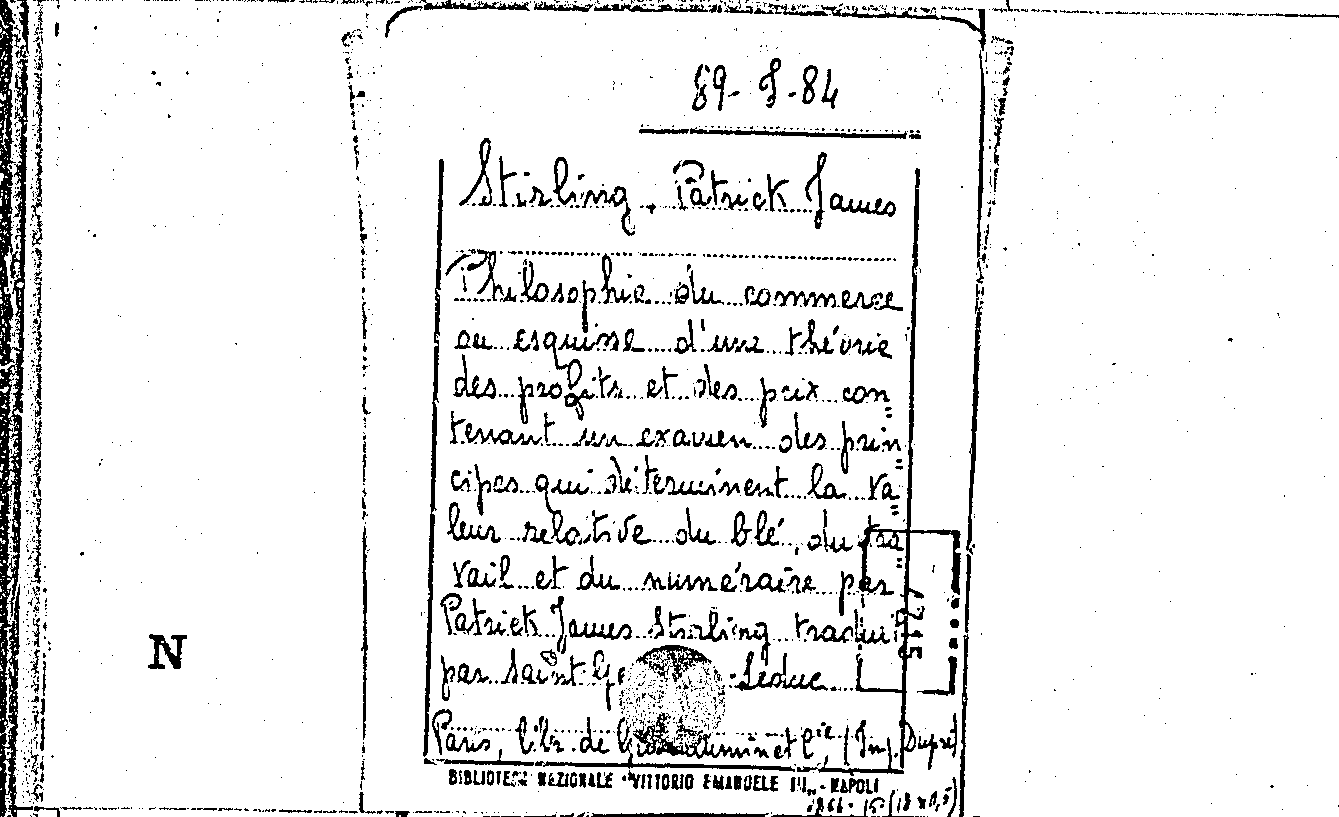 89-J-84
Stirling, Patrick James
Philosophie du commerce
ou esquisse d'une théorie
des profits et des prix con
tenant un examen des prin
cipes qui déterminent la va
leur relative du blé, du tra
vail et du numéraire par
Patrick James Stirling traduit
par Saint-Ge -Leduc
Paris, libr. de et Cie, (Imp. Dupré)
BIBLIOTECA NAZIONALE "VITTORIO EMANUELE III„ - NAPOLI
N